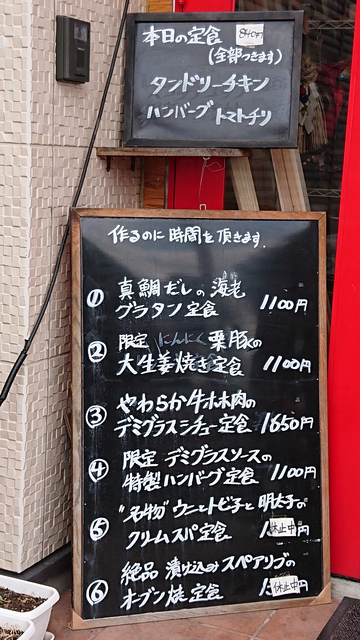 本日の定食 840円
(全部つきます)
タンドリーチキン
ハンバーグ トマトチリ
作るのに 時間を 頂きます。
① 真鯛だしの 海老
グラタン定食 1100円
② 限定 にんにく 栗豚の
大生姜焼き定食 1100円
③ やわらか牛ホホ肉の
デミグラスシチュー定食 1650円
④ 限定 デミグラスソースの
特製ハンバーグ定食 1100円
⑤ "名物" ウニとトビ子と 明太子の
クリームスパ定食 休止中 円
⑥ 絶品 漬け込み スペアリブの
オーブン焼定食 休止中 円